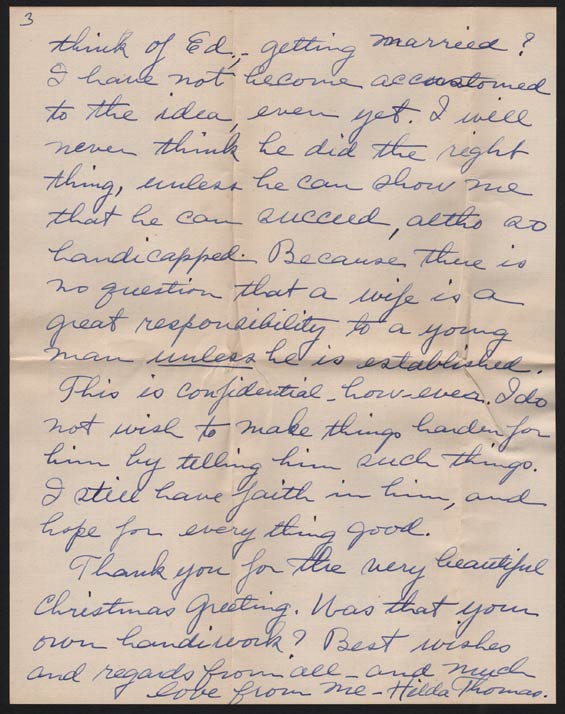 3
think of Ed., - getting married?
I have not become accustomed
to the idea, even yet. I will
never think he did the right
thing, unless he can show me
that he can succeed, altho so
handicapped. Because there is
no question that a wife is a
great responsibility to a young
man unless he is established.
This is confidential - how-ever. I do
not wish to make things harder for
him by telling him such things.
I still have faith in him, and
hope for every thing good.
Thank you for the very beautiful
Christmas Greeting. Was that your
own handiwork? Best wishes
and regards from all - and much
love from me - Hilda Thomas.